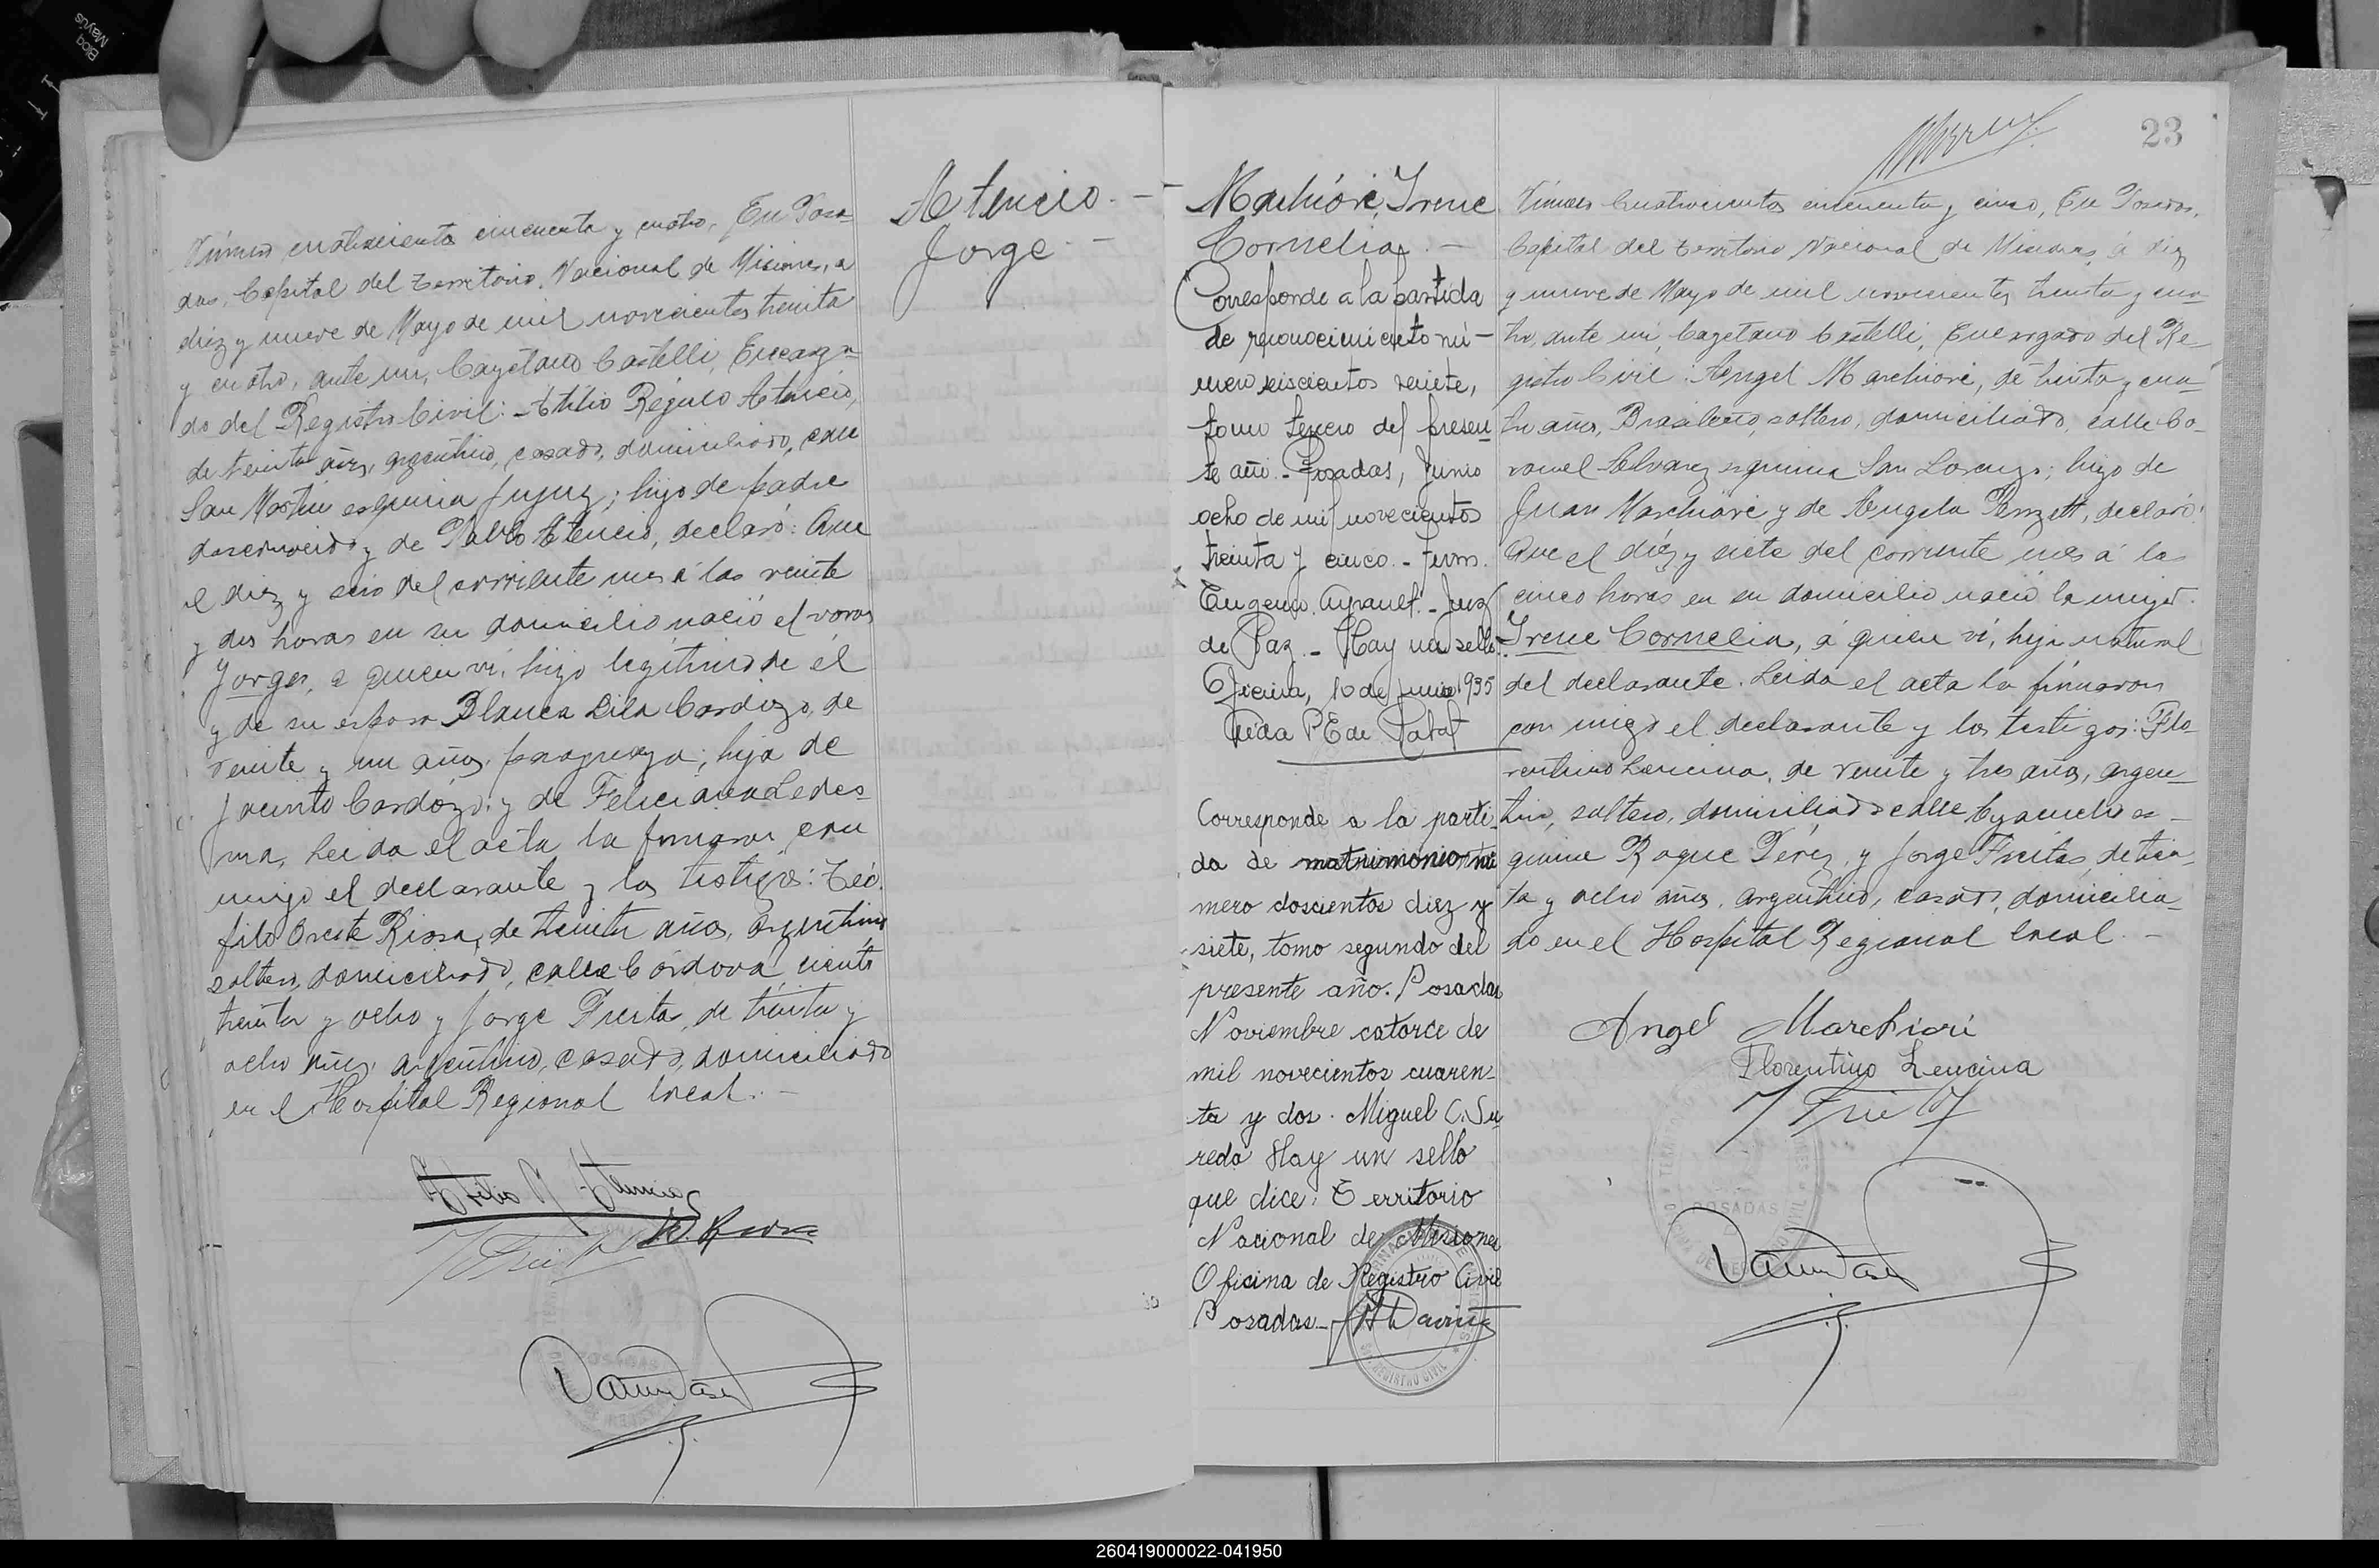 Número cuatrocientos cincuenta y cuatro, En Posa
das, Capital del Territorio Nacional de Misiones, a
diez y nueve de Mayo de mil novecientos treinta
y cuatro, ante mi, Cayetano Castelli, Encarga
do del Registro Civil: Atilio Régulo Atencio,
de treinta años, argentino, casado, domiciliado, calle
San Martin esquina Jujuy; hijo de padre
desconocido y de Pabla Atencio, declaró: Que
el diez y seis del corriente mes á las veinte
y dos horas en su domicilio nació el varon
Jorge, a quien ví, hijo legítimo de él
y de su esposa Blanca Lila Cardozo, de
veinte y un años, paraguaya; hija de
Jacinto Cardozo y de Feliciana Ledes-
ma, Leida el acta la firmaron con
migo el declarante y los testigos: Teó
filo Oreste Rissa, de treinta años, argentino
soltero, domiciliado, calle Córdova ciento
treinta y ocho y Jorge Freita, de treinta y
ocho años, argentino, casado, domiciliado
en el Hospital Regional local. -
Atilio R Atencio
Atencio. -
Jorge -
Marchiori, Irene
Cornelia. -
Corresponde a la partida
de reconocimiento nú-
mero seiscientos veinte,
tomo tercero del presen
te año. - Posadas, Junio
ocho de mil novecientos
treinta y cinco. - Firm.
Eugenio - Juez
de Paz. - Hay un sello
Oficina, 10 de junio 1935
Corresponde a la parti
da de matrimonio nú
mero doscientos diez y
siete, tomo segundo del
presente año. Posadas
Noviembre catorce de
mil novecientos cuaren-
ta y dos. Miguel C. Su
reda Hay un sello
que dice: Territorio
Nacional de Misiones
Oficina de Registro Civil
Posadas -
REGISTRO CIVIL
23
Número Cuatrocientos cincuenta y cinco, En Posadas,
Capital del Territorio Nacional de Misiones, á diez
y nueve de Mayo de mil novecientos treinta y cua-
tro, ante mi, Cayetano Castelli, Encargado del Re-
gistro Civil: Angel Marchiori, de treinta y cua-
tro años, Brasilero, soltero, domiciliado, calle Co-
ronel Alvarez esquina San Lorenzo; hijo de
Juan Marchiori y de Angela, declaró:
Que el diez y siete del corriente mes á las
cinco horas en su domicilio nació la mujer
Irene Cornelia, á quien ví, hija natural
del declarante. Leida el acta la firmaron
con migo el declarante y los testigos: Flo
rentino Lencina, de veinte y tres años, argen-
tino, soltero, domiciliado calle Ayacucho es-
quina Roque Pérez, y Jorge Freitas, de trein
ta y ocho años, argentino, casado, domicilia-
do en el Hospital Regional local. -
Angel Marchiori
Florentino Lencina
POSADAS
260419000022-041950